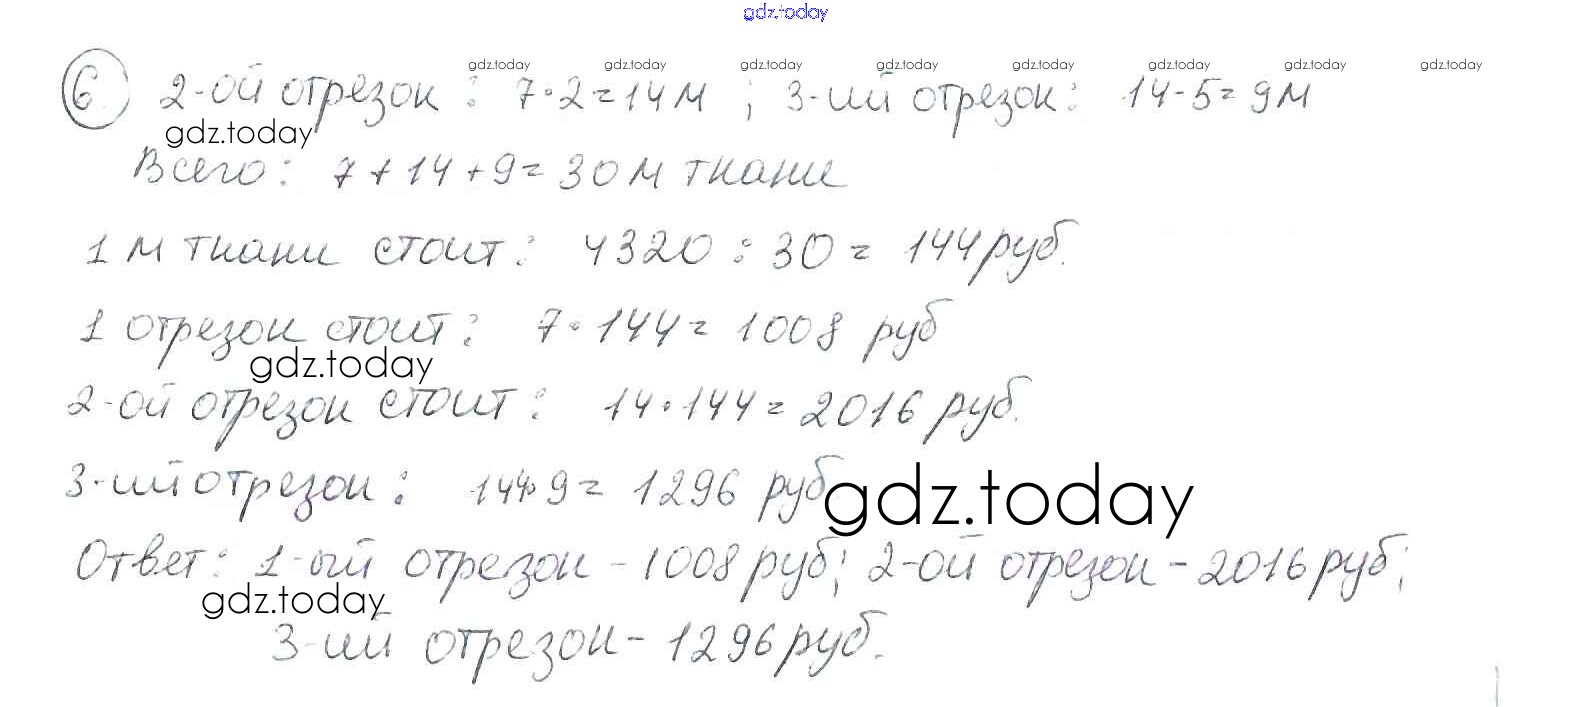 gdz.today
gdz.today gdz.today gdz.today gdz.today gdz.today gdz.today gdz.today gdz.today
6 2-ой отрезок : 7·2=14м ; 3-ий отрезок: 14-5=9м
gdz.today
Всего: 7+14+9=30м ткани
1 м ткани стоит: 4320:30=144руб.
1 отрезок стоит: 7·144=1008 руб
gdz.today
2-ой отрезок стоит: 14·144=2016 руб.
3-ий отрезок: 144·9=1296 руб
gdz.today
Ответ: 1-ый отрезок-1008руб; 2-ой отрезок-2016руб;
gdz.today
3-ий отрезок-1296руб.